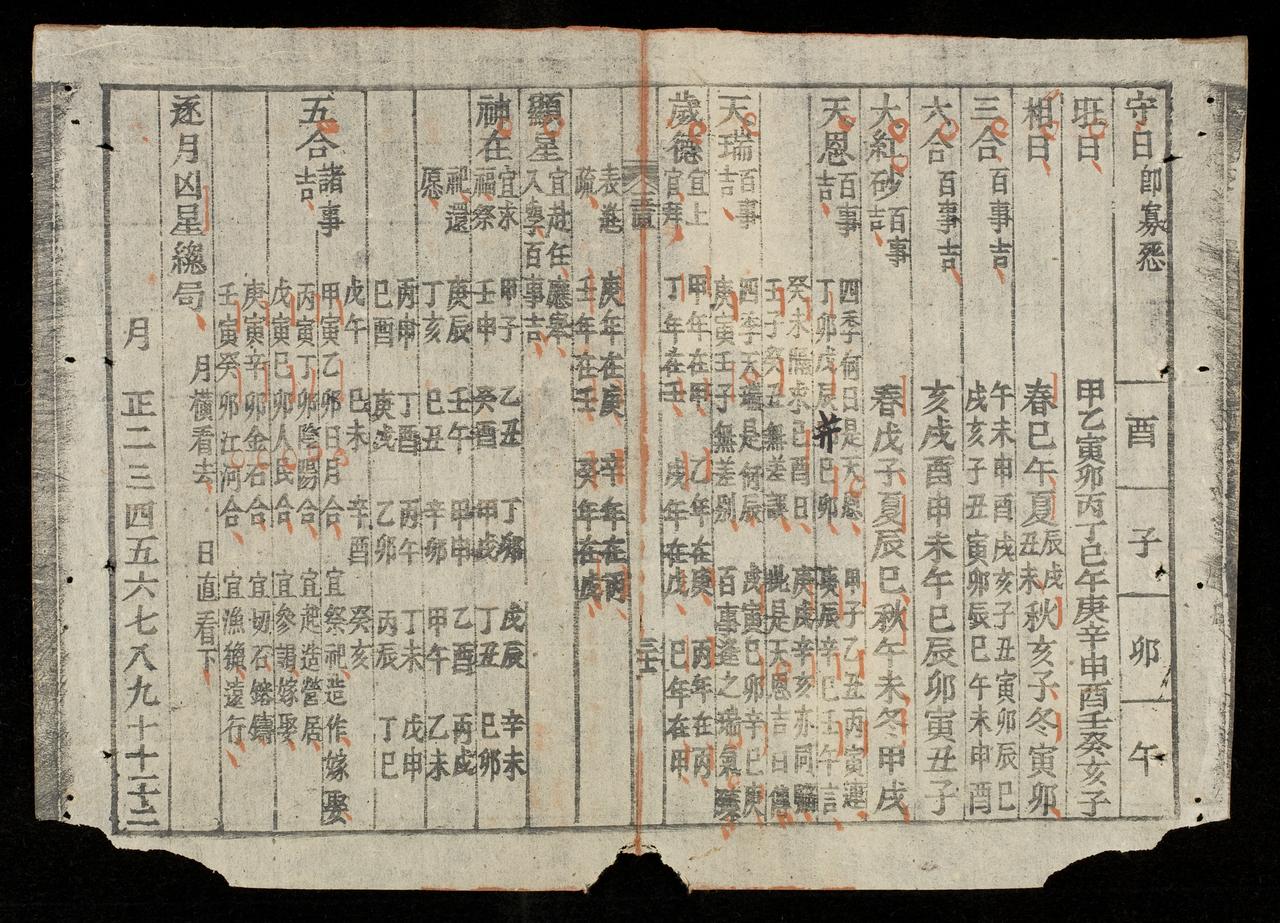 守日即寡怨 酉 子 卯 午
旺日 甲乙寅卯丙丁巳午庚辛申酉壬癸亥子
相日 春巳午夏辰戌丑未秋亥子冬寅卯
三合百事吉 午未申酉戌亥子丑寅卯辰巳
戌亥子丑寅卯辰巳午未申酉
六合百事吉 亥戌酉申未午巳辰卯寅丑子
大紅砂百事吉 春戊子夏辰巳秋午未冬甲戌
天恩百事吉 四季何日是天恩 甲子乙丑丙寅連
丁卯戊辰并巳卯 庚辰辛巳壬午言
癸未隔求巳酉日 庚戌辛亥亦同
壬子癸丑無差 此是天恩吉日
天瑞百事吉 四季天瑞是何辰 戊寅巳卯辛巳庚
庚寅壬子無差別 百事逢之瑞氣
歲德宜上官拜 甲年在甲 乙年在庚 丙年在丙
丁年在壬 戊年在戊 巳年在甲
表進疏 庚年在庚 辛年在丙
壬年在壬 癸年在戊
顯星宜赴任應舉入學百事吉
神在宜求福祭祀還愿 甲子 乙丑 丁卯 戊辰 辛未
壬申 癸酉 甲戌 丁丑 巳卯
庚辰 壬午 甲申 乙酉 丙戌
丁亥 巳丑 辛卯 甲午 乙未
丙申 丁酉 丙午 丁未 戊申
巳酉 庚戌 乙卯 丙辰 丁巳
戊午 巳未 辛酉 癸亥
五合諸事吉 甲寅乙卯日月合 宜祭祀造作嫁娶
丙寅丁卯陰陽合 宜起造營居
戊寅巳卯人民合 宜參謁嫁娶
庚寅辛卯金石合 宜切石鎔鑄
壬寅癸卯江河合 宜漁獵遠行
逐月凶星總局 月橫看去 日直看下
月 正二三四五六七八九十十一十二